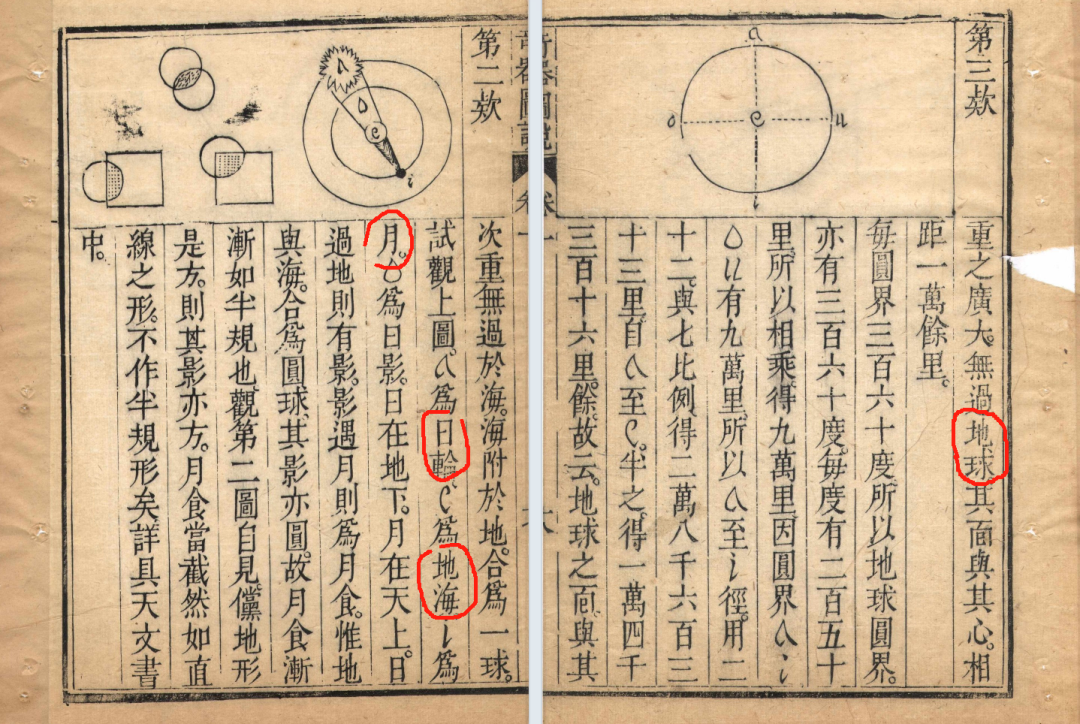 第三欵
a
o
e
u
i
重之廣大。無過地球。其面與其心。相
距一萬餘里。
每圓界三百六十度。所以地球圓界。
亦有三百六十度。每度有二百五十
里。所以相乘。得九萬里。因圓界a i
o u有九萬里。所以a至i徑。用二
十二。與七比例。得二萬八千六百三
十三里。自a至e。半之。得一萬四千
三百十六里。餘。故云。地球之面。與其
奇器圖說
卷一
第二欵
a
o
e
i
次重無過於海。海附於地。合爲一球。
試觀上圖。a爲日輪。e爲地海。i爲
月。o爲日影。日在地下。月在天上。日
過地則有影。影遇月則爲月食。惟地
與海。合爲圓球。其影亦圓。故月食漸
漸如半規也。觀第二圖自見。儻地形
是方。則其影亦方。月食當截然如直
線之形。不作半規形矣。詳具天文書
中。